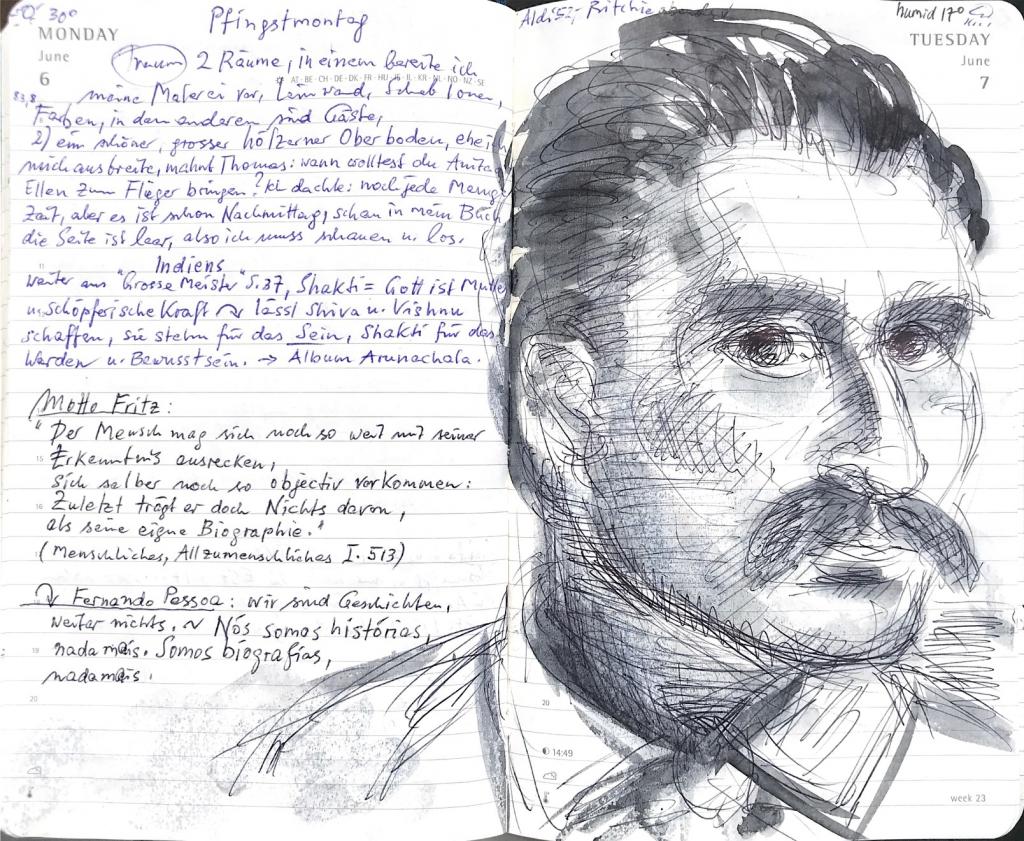 30°
Pfingstmontag
MONDAY
June
6
Traum 2 Räume, in einem bereite ich
AT·BE·CH·DE·DK·FR·HU·IS·IL·KR·NL·NO·NZ·SE
83,8 meine Malerei vor, Leinwand, Schablonen,
Farben, in dem anderen sind Gäste,
2) ein schöner, grosser hölzerner Oberboden, ehe ich
mich ausbreite, mahnt Thomas: wann wolltest du Anita
Ellen zum Flieger bringen? ich dachte: noch jede Menge
Zeit, aber es ist schon Nachmittag, schau in mein Buch
die Seite ist leer, also ich muss schauen u. los.
11
Indiens
weiter aus "Grosse Meister" S.37, Shakti = Gott ist Mutter
u. schöpferische Kraft lässt Shiva u. Vishnu
schaffen, sie stehn für das Sein, Shakti für das
Werden u. Bewusstsein. → Album Arunachala.
Motto Fritz:
"Der Mensch mag sich noch so weit mit seiner
15 Erkenntnis ausrecken,
sich selber noch so objectiv vorkommen:
16 Zuletzt trägt er doch Nichts davon,
als seine eigne Biographie."
(Menschliches, Allzumenschliches I. 513)
Fernando Pessoa: wir sind Geschichten,
weiter nichts. ~ Nós somos histórias,
19 nada mais. Somos biografias,
nada mais.
20
Aldi 52,- Ritchie
humid 17°
TUESDAY
June
7
20
14:49
week 23